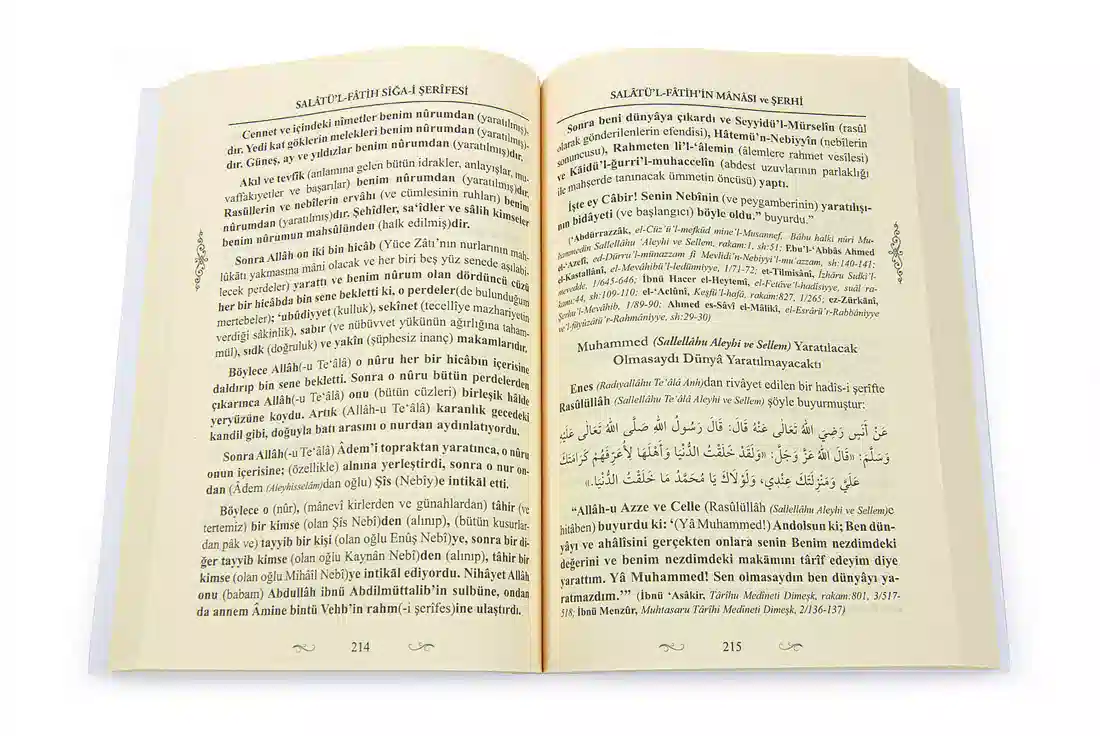 SALÂTÜ'L-FÂTİH SÎĞA-İ ŞERÎFESİ
Cennet ve içindeki nîmetler benim nûrumdan (yaratılmış)-
dır. Yedi kat göklerin melekleri benim nûrumdan (yaratılmış)-
dır. Güneş, ay ve yıldızlar benim nûrumdan (yaratılmış)dır.
Akıl ve tevfîk (anlamına gelen bütün idrakler, anlayışlar, mu-
vaffakıyetler ve başarılar) benim nûrumdan (yaratılmış)dır.
Rasüllerin ve nebîlerin ervâhı (ve cümlesinin ruhları) benim
nûrumdan (yaratılmış)dır. Şehîdler, sa'îdler ve sâlih kimseler
benim nûrumun mahsulünden (halk edilmiş)dir.
Sonra Allâh on iki bin hicâb (Yüce Zâtı'nın nurlarının mah-
lûkâtı yakmasına mâni olacak ve her biri beş yüz senede aşılabi-
lecek perdeler) yarattı ve benim nûrum olan dördüncü cüzü
her bir hicâbda bin sene bekletti ki, o perdeler(de bulunduğum
mertebeler); 'ubûdiyyet (kulluk), sekînet (tecellîye mazhariyetin
verdiği sâkinlik), sabır (ve nübüvvet yükünün ağırlığına taham-
mül), sıdk (doğruluk) ve yakîn (şüphesiz inanç) makamlarıdır.
Böylece Allâh(-u Te'âlâ) o nûru her bir hicâbın içerisine
daldırıp bin sene bekletti. Sonra o nûru bütün perdelerden
çıkarınca Allâh(-u Te'âlâ) onu (bütün cüzleri) birleşik hâlde
yeryüzüne koydu. Artık (Allâh-u Te'âlâ) karanlık gecedeki
kandil gibi, doğuyla batı arasını o nurdan aydınlatıyordu.
Sonra Allâh(-u Te'âlâ) Âdem'i topraktan yaratınca, o nûru
onun içerisine; (özellikle) alnına yerleştirdi, sonra o nur on-
dan (Âdem (Aleyhisselâm)dan oğlu) Şîs (Nebîy)e intikāl etti.
Böylece o (nûr), (mânevî kirlerden ve günahlardan) tâhir (ve
tertemiz) bir kimse (olan Şîs Nebî)den (alınıp), (bütün kusurlar-
dan pâk ve) tayyib bir kişi (olan oğlu Enûş Nebî)ye, sonra bir di-
ğer tayyib kimse (olan oğlu Kaynân Nebî)den (alınıp), tâhir bir
kimse (olan oğlu Mihâil Nebî)ye intikāl ediyordu. Nihâyet Allâh
onu (babam) Abdullâh ibnü Abdilmüttalib'in sulbüne, ondan
da annem Âmine bintü Vehb'in rahm(-i şerîfes)ine ulaştırdı.
214
SALÂTÜ'L-FÂTİH'İN MÂNÂSI ve ŞERHİ
Sonra beni dünyâya çıkardı ve Seyyidü'l-Mürselîn (rasûl
olarak gönderilenlerin efendisi), Hâtemü'n-Nebiyyîn (nebîlerin
sonuncusu), Rahmeten li'l-'âlemîn (âlemlere rahmet vesîlesi)
ve Kāidü'l-ğurri'l-muhaccelîn (abdest uzuvlarının parlaklığı
ile mahşerde tanınacak ümmetin öncüsü) yaptı.
İşte ey Câbir! Senin Nebînin (ve peygamberinin) yaratılışı-
nın bidâyeti (ve başlangıcı) böyle oldu." buyurdu."
('Abdürrazzâk, el-Cüz'ü'l-mefkūd mine'l-Musannef, Bâbu halkı nûri Mu-
hammedin Sallellâhu 'Aleyhi ve Sellem, rakam:1, sh:51; Ebu'l-'Abbâs Ahmed
el-'Azefî, ed-Dürru'l-münazzam fî Mevlidi'n-Nebiyyi'l-mu'azzam, sh:140-141;
el-Kastallânî, el-Mevâhibü'l-ledünniyye, 1/71-72; et-Tilmisânî, İzhâru Sıdkı'l-
mevedde, 1/645-646; İbnü Hacer el-Heytemî, el-Fetâve'l-hadîsiyye, suâl ra-
kamı:44, sh:109-110; el-'Aclûnî, Keşfü'l-hafâ, rakam:827, 1/265; ez-Zürkānî,
Şerhu'l-Mevâhib, 1/89-90; Ahmed es-Sâvî el-Mâlikî, el-Esrârü'r-Rabbâniyye
ve'l-füyûzâtü'r-Rahmâniyye, sh:29-30)
Muhammed (Sallellâhu Aleyhi ve Sellem) Yaratılacak
Olmasaydı Dünyâ Yaratılmayacaktı
Enes (Radıyallâhu Te'âlâ Anh)dan rivâyet edilen bir hadîs-i şerîfte
Rasûlüllâh (Sallellâhu Te'âlâ Aleyhi ve Sellem) şöyle buyurmuştur:
عَنْ أَنَسٍ رَضِيَ اللهُ تَعَالَى عَنْهُ قَالَ: قَالَ رَسُولُ اللهِ صَلَّى اللهُ تَعَالَى عَلَيْهِ
وَسَلَّمَ: «قَالَ اللهُ عَزَّ وَجَلَّ: «وَلَقَدْ خَلَقْتُ الدُّنْيَا وَأَهْلَهَا لِأُعَرِّفَهُمْ كَرَامَتَكَ
عَلَيَّ وَمَنْزِلَتَكَ عِنْدِي، وَلَوْلَاكَ يَا مُحَمَّدُ مَا خَلَقْتُ الدُّنْيَا.»
"Allâh-u Azze ve Celle (Rasûlüllâh (Sallellâhu Aleyhi ve Sellem)e
hitâben) buyurdu ki: '(Yâ Muhammed!) Andolsun ki; Ben dün-
yâyı ve ahâlîsini gerçekten onlara senin Benim nezdimdeki
değerini ve benim nezdimdeki makāmını târîf edeyim diye
yarattım. Yâ Muhammed! Sen olmasaydın ben dünyâyı ya-
ratmazdım.'" (İbnü 'Asâkir, Târîhu Medîneti Dimeşk, rakam:801, 3/517-
518; İbnü Menzûr, Muhtasaru Târîhi Medîneti Dimeşk, 2/136-137)
215